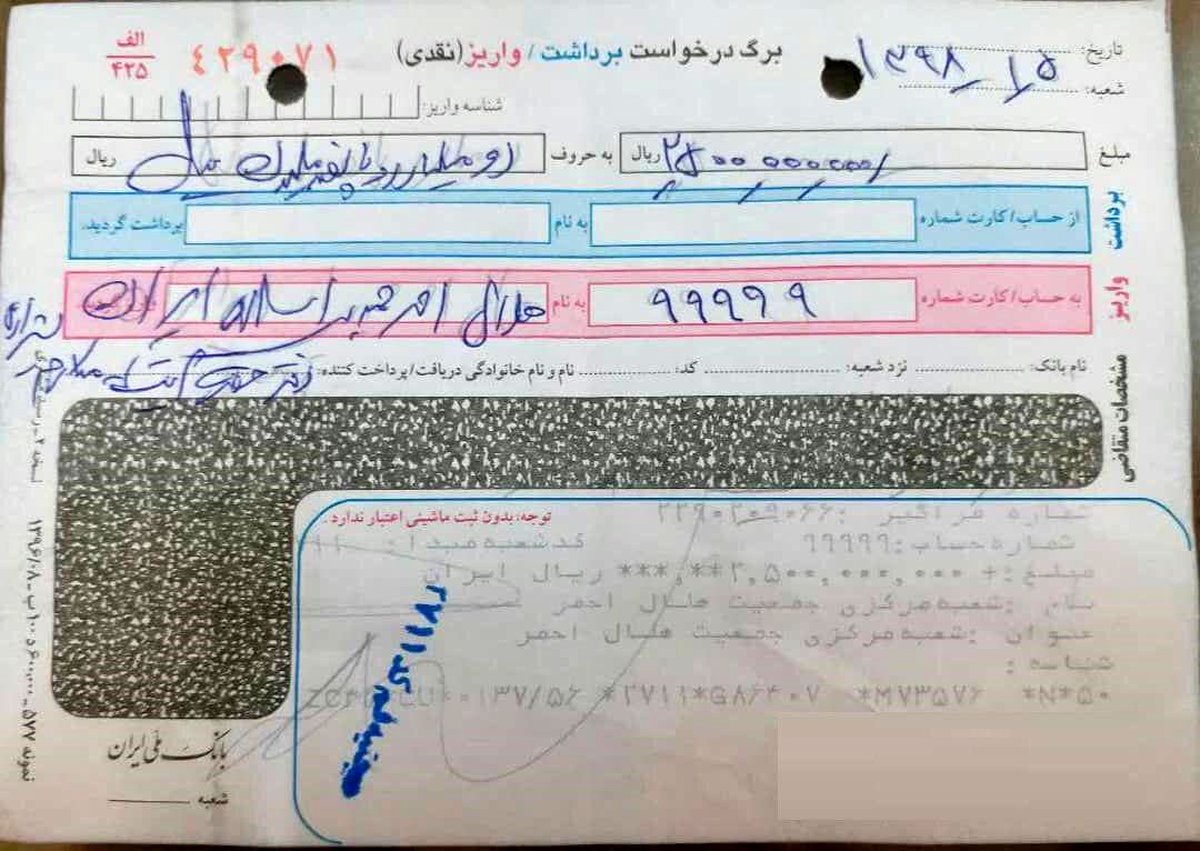 تاریخ: ۱۳۹۸/۱/۵
برگ درخواست برداشت / واریز (نقدی)
۴۲۹۰۷۱
الف
۴۲۵
شعبه:
شناسه واریز:
مبلغ ۲۵۰۰ ۰۰۰ ۰۰۰/ ریال به حروف دو میلیارد و پانصد میلیون ریال
برداشت
از حساب/کارت شماره به نام برداشت گردید.
واریز
به حساب/کارت شماره ۹۹۹۹۹ به نام هلال احمر جمهوری اسلامی ایران
مشخصات متقاضی
نام بانک: نزد شعبه: کد: نام و نام خانوادگی دریافت/پرداخت کننده:
توجه: بدون ثبت ماشینی اعتبار ندارد.
شماره فراگیر: ۲۲۹۰۲۰۹۰۶۶
شماره حساب: ۹۹۹۹۹ کد شعبه مبدا:
مبلغ: + ۲,۵۰۰,۰۰۰,۰۰۰**,*** ریال ایران
نام: شعبه مرکزی جمعیت هلال احمر
عنوان: شعبه مرکزی جمعیت هلال احمر
شناسه:
۰۱۳۷/۵۶ *۲۷۱۱*GA۶۴۰۷ *M۷۳۵۷۶ *N*۵۰
کد ۲۷۱۱
بانک ملی ایران
شعبه